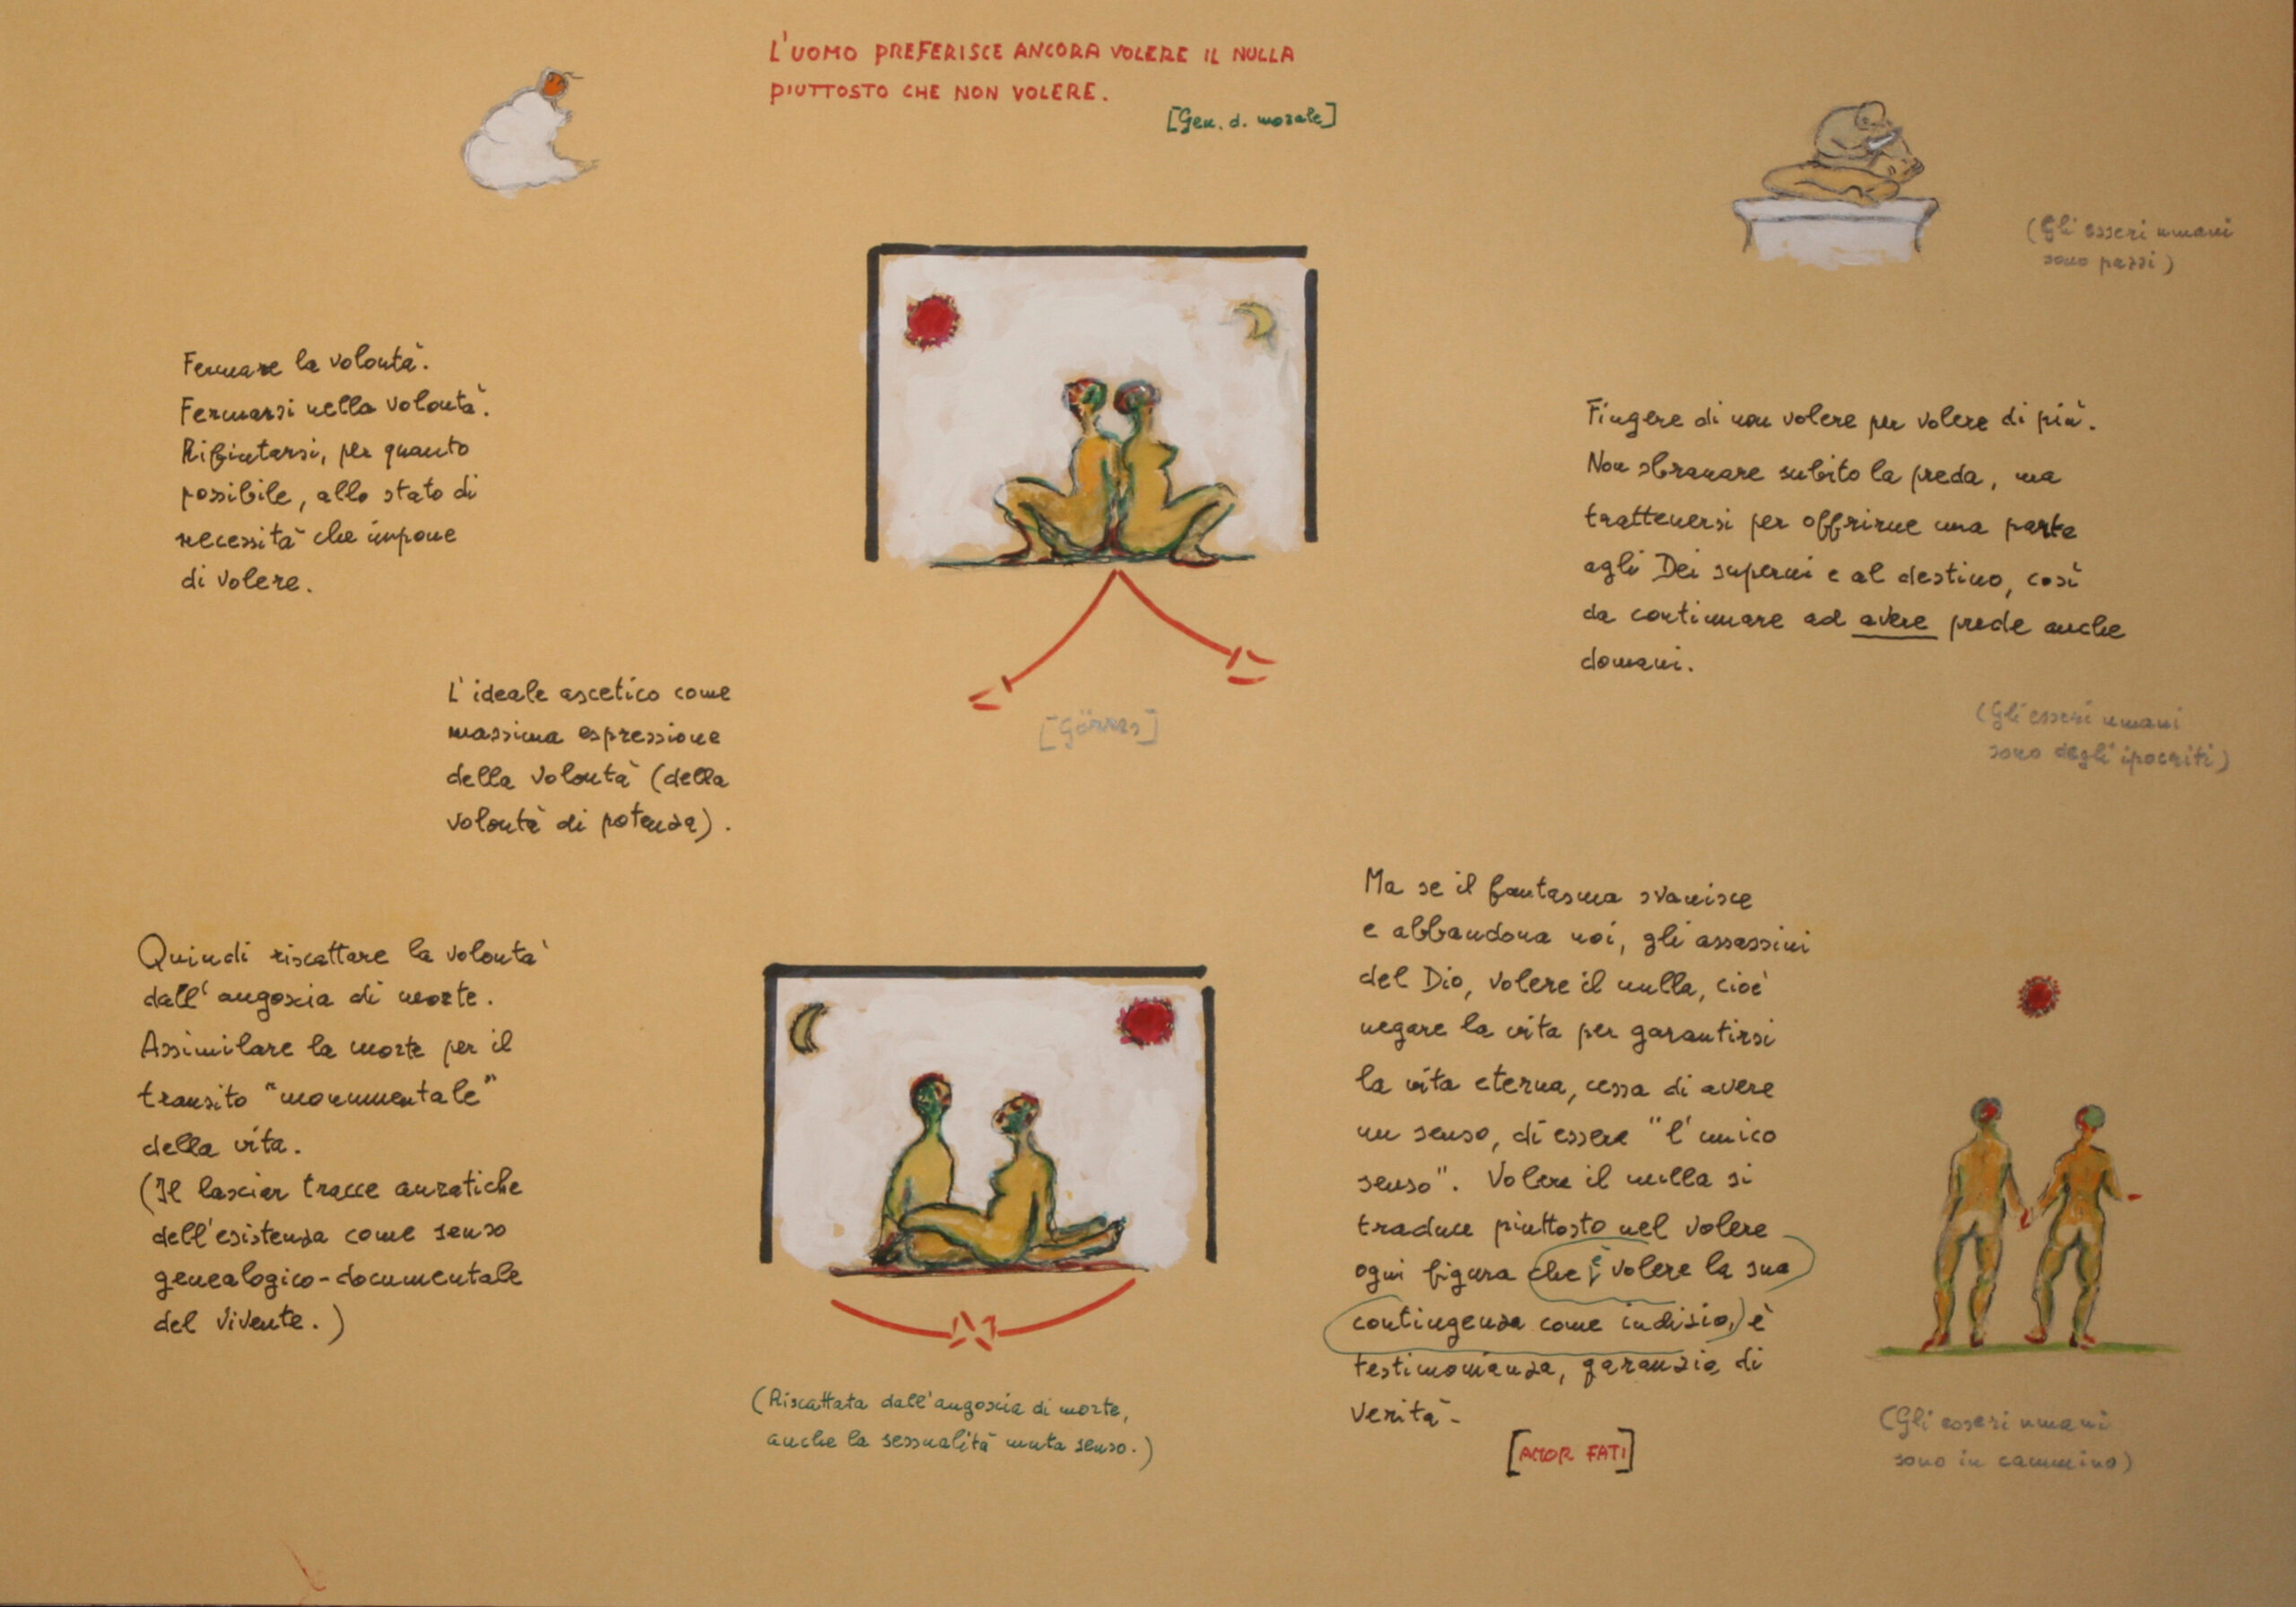 L'UOMO PREFERISCE ANCORA VOLERE IL NULLA
PIUTTOSTO CHE NON VOLERE.
[Gen. d. morale]
(Gli esseri umani
sono pazzi)
Fermare la volontà.
Fermarsi nella volontà.
Rifiutarsi, per quanto
possibile, allo stato di
necessità che impone
di volere.
Fingere di non volere per volere di più.
Non sbranare subito la preda, ma
trattenersi per offrirne una parte
agli Dei superni e al destino, così
da continuare ad avere prede anche
domani.
L'ideale ascetico come
massima espressione
della volontà (della
volontà di potenza).
[Görres]
(Gli esseri umani
sono degli ipocriti)
Quindi riscattare la volontà
dall'angoscia di morte.
Assimilare la morte per il
transito "monumentale"
della vita.
(Il lasciar tracce auratiche
dell'esistenza come senso
genealogico-documentale
del vivente.)
(Riscattata dall'angoscia di morte,
anche la sessualità muta senso.)
Ma se il fantasma svanisce
e abbandona noi, gli assassini
del Dio, volere il nulla, cioè
negare la vita per garantirsi
la vita eterna, cessa di avere
un senso, di essere "l'unico
senso". Volere il nulla si
traduce piuttosto nel volere
ogni figura che è volere la sua
contingenza come indizio, è
testimonianza, garanzia di
verità.
[AMOR FATI]
(Gli esseri umani
sono in cammino)